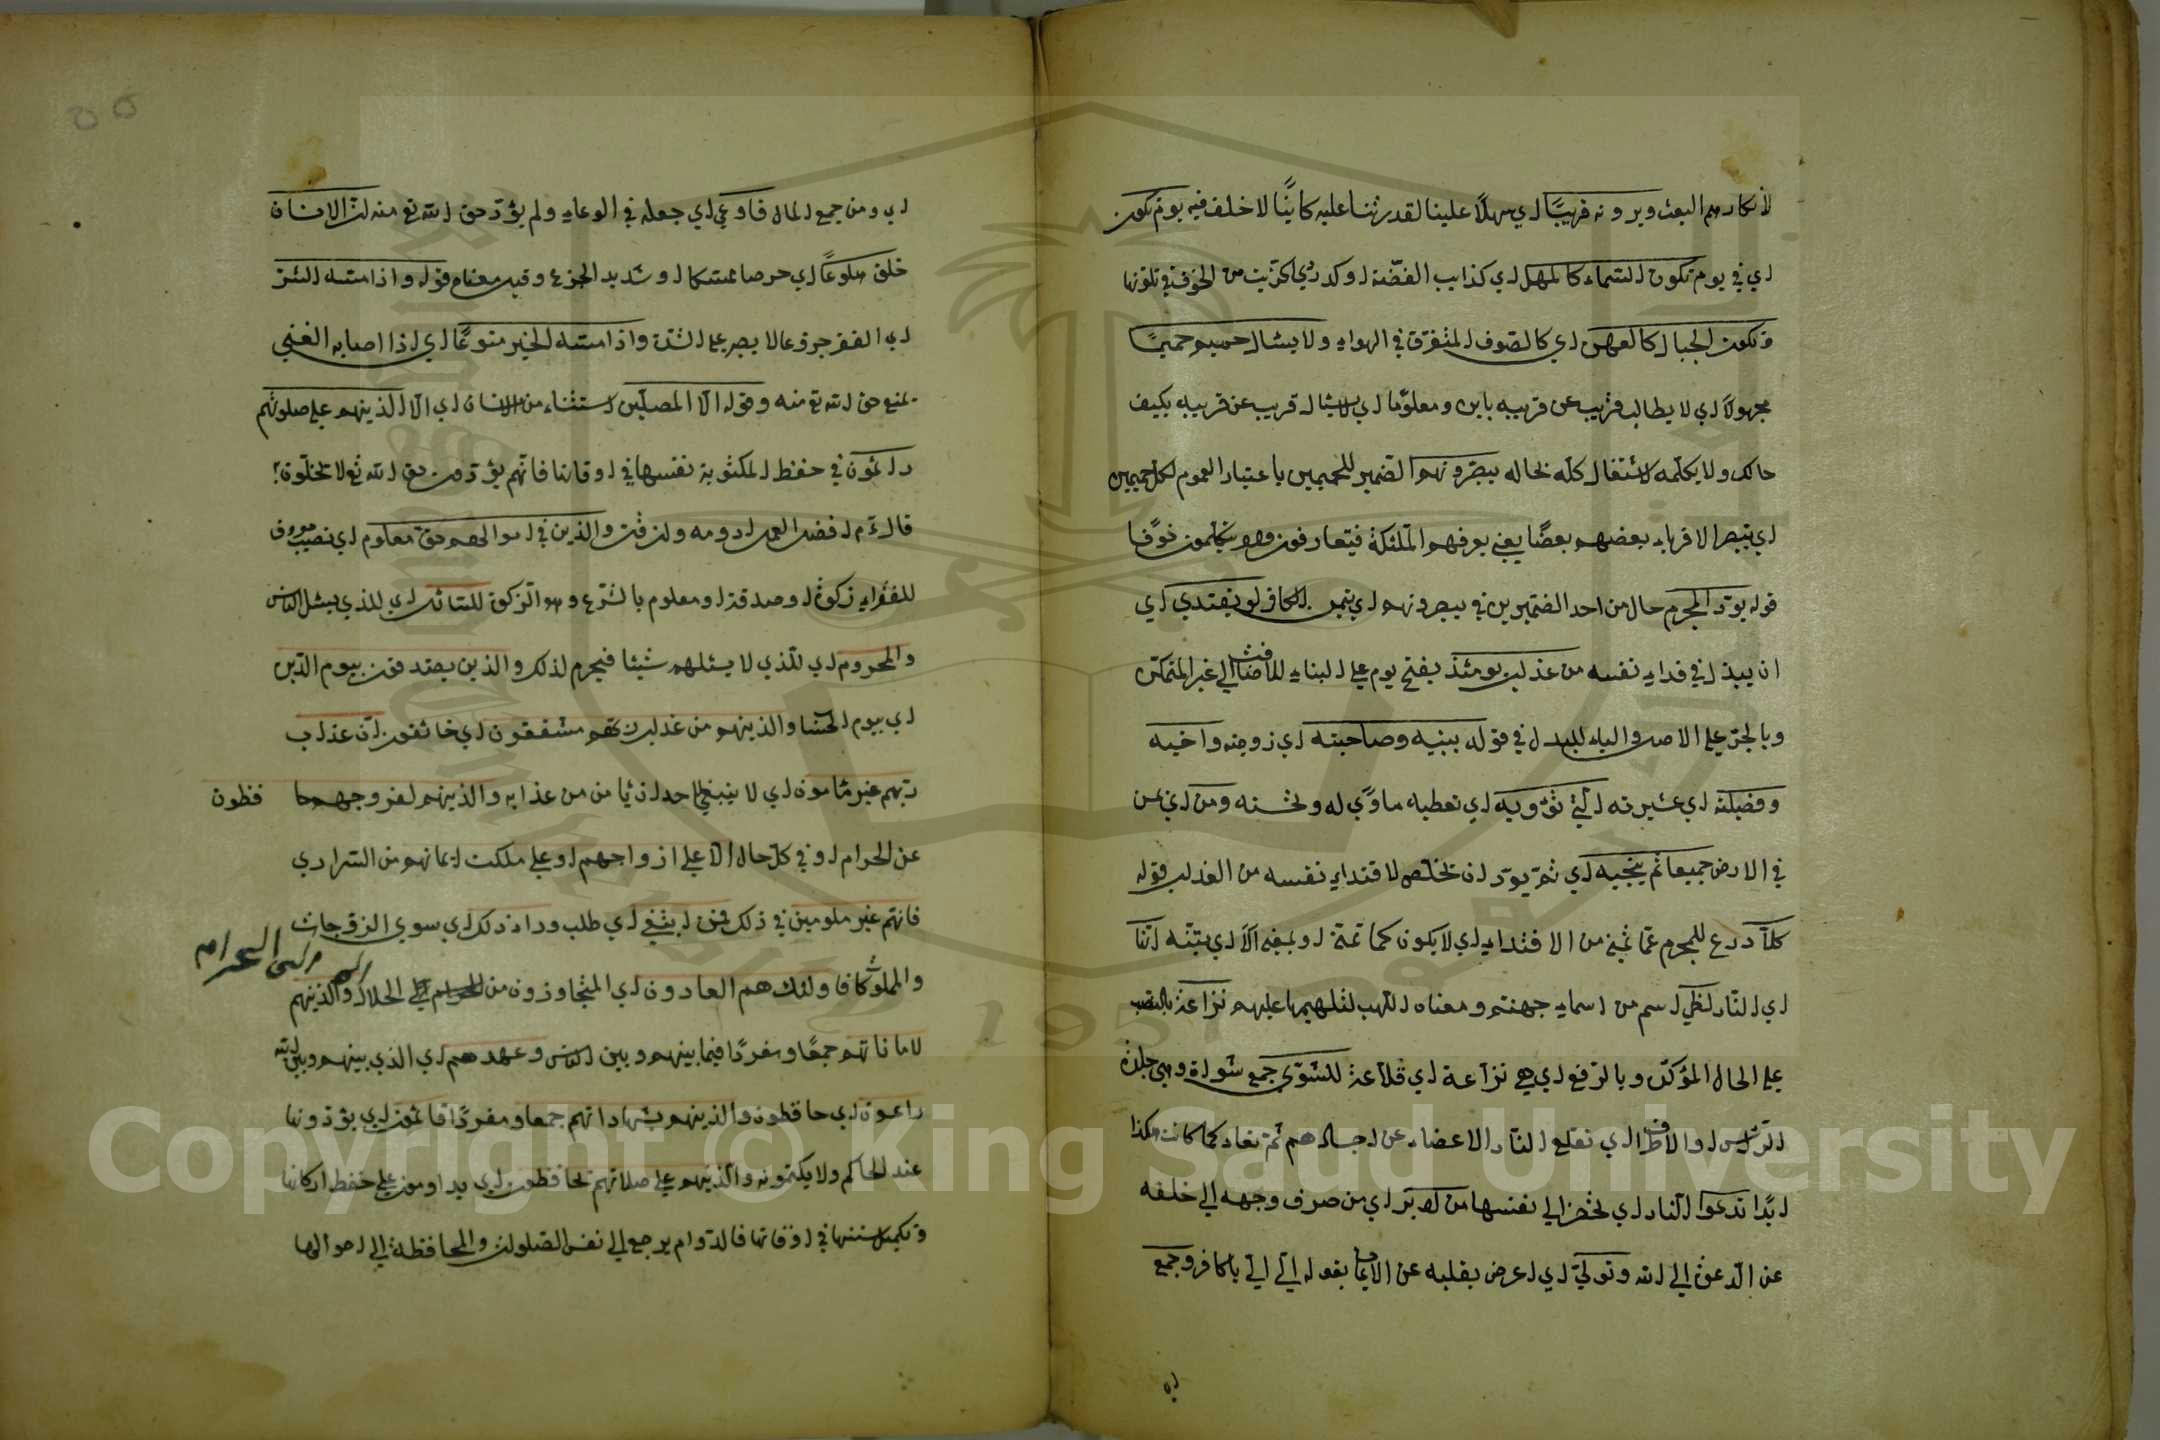 لانكارهم البعث ونريه قريبا اي سهلا علينا لقدرتنا عليه كاينا لا خلف فيه يوم تكون
اي في يوم تكون السماء كالمهل اي كذايب الفضة او كدردي الزيت من الخوف في تلونها
وتكون الجبال كالعهن اي كالصوف المتفرق في الهواء ولا يسئل حميم حميما
مجهولا اي لا يطالب قريب عن قريبه باين ومعلوما اي لا يسال قريب عن قريبه بكيف
حالك ولا يكلمه لاشتغال كله بحاله يبصرونهم الضمير للحميمين باعتبار العموم لكل حميمين
اي يتبصر الاقرباء بعضهم بعضا يعني يعرفهم الملئكة فيتعارفون وهم يتكلمون خوفا
قوله يود المجرم حال من احد الضميرين في يبصرونهم اي يتمنى الكافر لو يفتدي اي
ان يبذل في فداء نفسه من عذاب يومئذ بفتح يوم على البناء للاضافة الى غير المتمكن
وبالجر على الاصل والباء للبدل في قوله ببنيه وصاحبته اي زوجته واخيه
وفصيلته اي عشيرته التي تؤويه اي تعطيه ماوى له ومن في
في الارض جميعا ثم ينجيه اي ثم يود ان تخلص لافتداء نفسه من العذاب قوله
كلا ردع للمجرم عما تمنى من الافتداء اي لا يكون كما تمنى او بمعنى الا اي يتنبه انها
اي النار لظى اسم من اسماء جهنم ومعناه اللهب لتلهبها عليهم نزاعة بالنصب
على الحال المؤكد وبالرفع اي هي نزاعة اي قلاعة للشوى جمع شواة وهي جلدة
الراس او الاطراف اي تقلع النار الاعضاء عن اجسادهم ثم تعاد كما كانت هكذا
ابدا تدعوا النار اي تحضر الى نفسها من ادبر اي من صرف وجهه الى خلفه
عن الدعوة الى الله وتولى اي اعرض بقلبه عن الايمان بقوله الي الي يا كافر وجمع
اي
اي ومن جمع المال فاوعى اي جعله في الوعاء ولم يؤد حق الله تع منه ان الانسان
خلق هلوعا اي حرصا ممسكا او شديد الجزع وقيل معناه قوله واذا مسه الشر
اي الفقر جزوعا لا يصبر على الشدة واذا مسه الخير منوعا اي اذا اصابه الغنى
يمنع حق الله تع منه وقوله الا المصلين استثناء من الانسان اي الا الذين هم على صلوتهم
دائمون في حفظ المكتوبة نفسها في اوقاتها فانهم يؤدون حق الله تع لا يخلون
قال ءم افضل العمل ادومه وان قلت والذين في اموالهم حق معلوم اي نصيب معروف
للفقراء زكوة او صدقة او معلوم بالشرع وهو الزكوة للسائل اي للذي يسئل الناس
والمحروم اي للذي لا يسئلهم شيئا فيحرم لذلك والذين يصدقون بيوم الدين
اي بيوم الحساب والذين هم من عذاب ربهم مشفقون اي خائفون ان عذاب
ربهم غير مامون اي لا ينبغي لاحد ان يامن من عذابه والذين هم لفروجهم حافظون
عن الحرام او في كل حال الا على ازواجهم او على ما ملكت ايمانهم من السراري
فانهم غير ملومين في ذلك فمن ابتغى اي طلب وراء ذلك اي سوى الزوجات
والمملوكة فاولئك هم العادون اي المتجاوزون من الحلال والذين هم
من الحلال الى الحرام
لاماناتهم جمعا ومفردا فيما بينهم وبين الناس وعهدهم اي الذي بينهم وبين الله
راعون اي حافظون والذين هم بشهاداتهم جمعا ومفردا قائمون اي يؤدونها
عند الحاكم ولا يكتمونه والذين هم على صلاتهم يحافظون اي يداومون على حفظ اركانها
وتكميل سننها في اوقاتها فالدوام يرجع الى نفس الصلوات والمحافظة الى احوالها
Copyright © King Saud University
1957